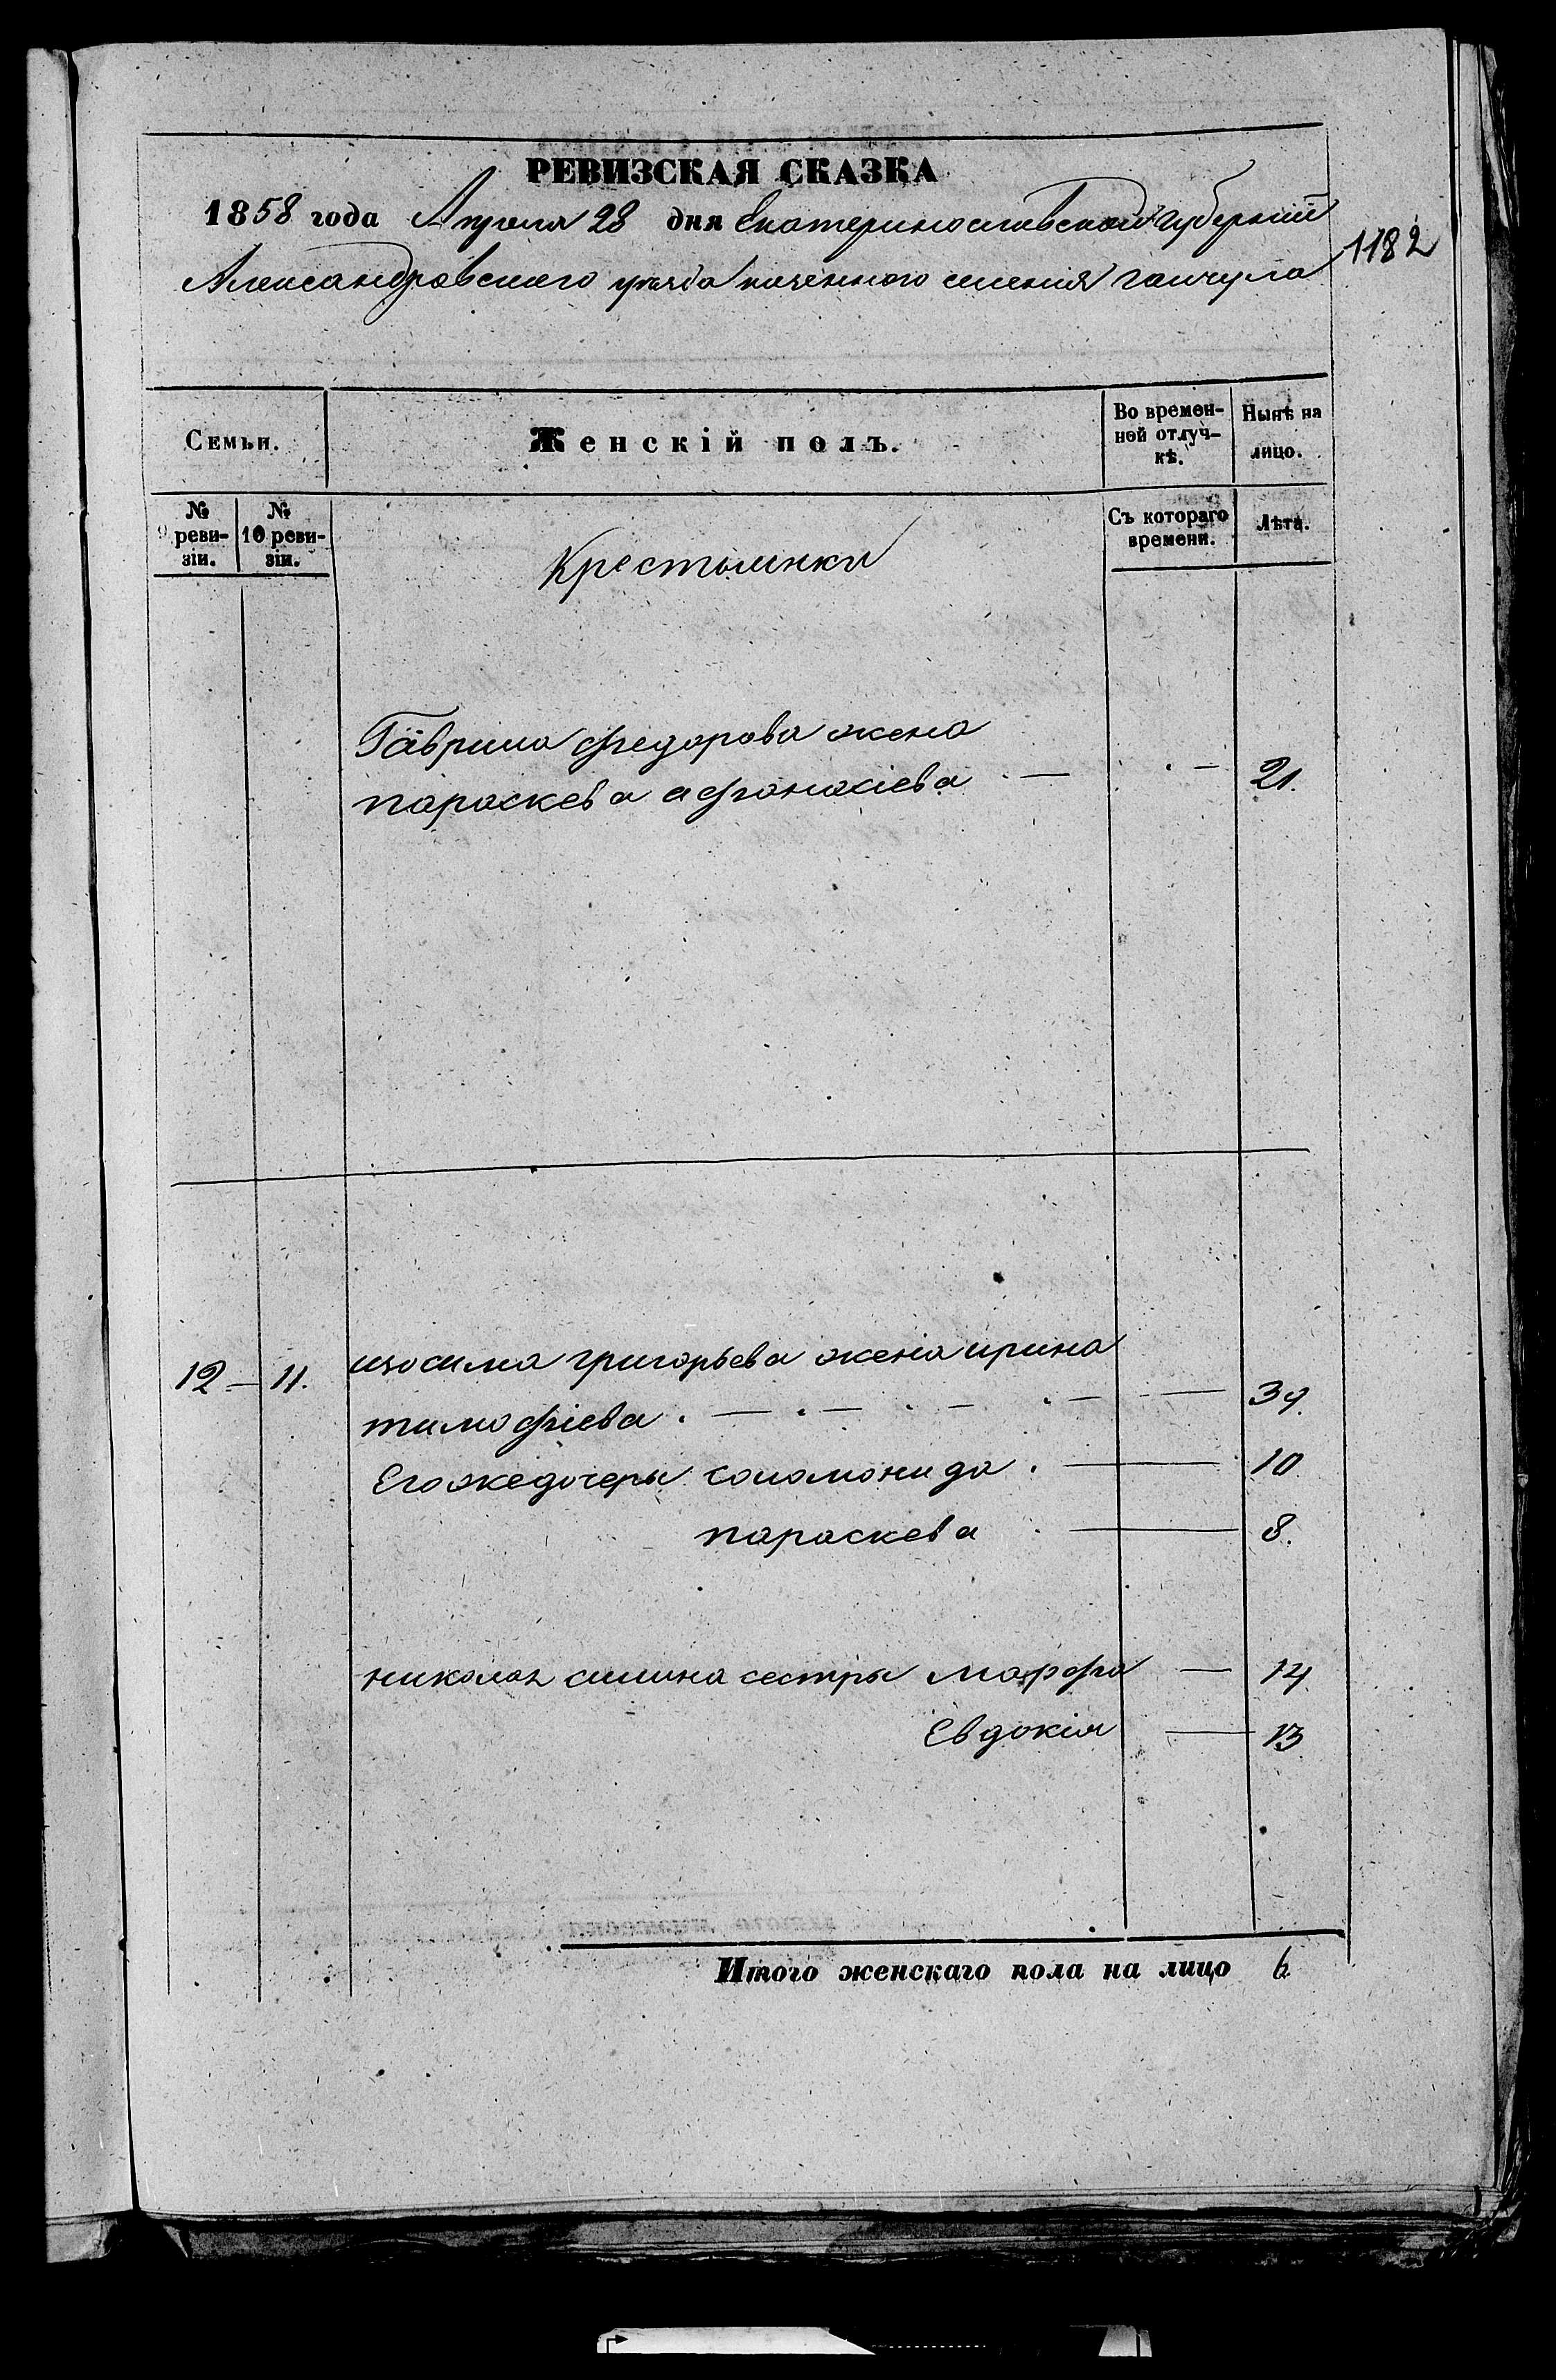 РЕВИЗСКАЯ СКАЗКА
1858 года Апреля 28 дня Екатеринославской Губернии
1182
Александровского уезда казенного селения гайчула
Семьи.
Женскій полъ.
Во времен-
ной отлуч-
кѣ.
Нынѣ на
лицо.
№
9 реви-
зіи.
№
10 реви-
зіи.
Крестьянки
Съ котораго
времени.
Лѣта.
Гаврила федорова жена
параскева афанасіева — — 21.
12 — 11. изосима григорьева жена ирина
тимофіева . — . — . — . — . — 39.
Его же дочеры соломонида . — 10
параскева . — 8.
николая силина сестры марфа — 14
Евдокія — 13
Итого женскаго пола на лицо 6